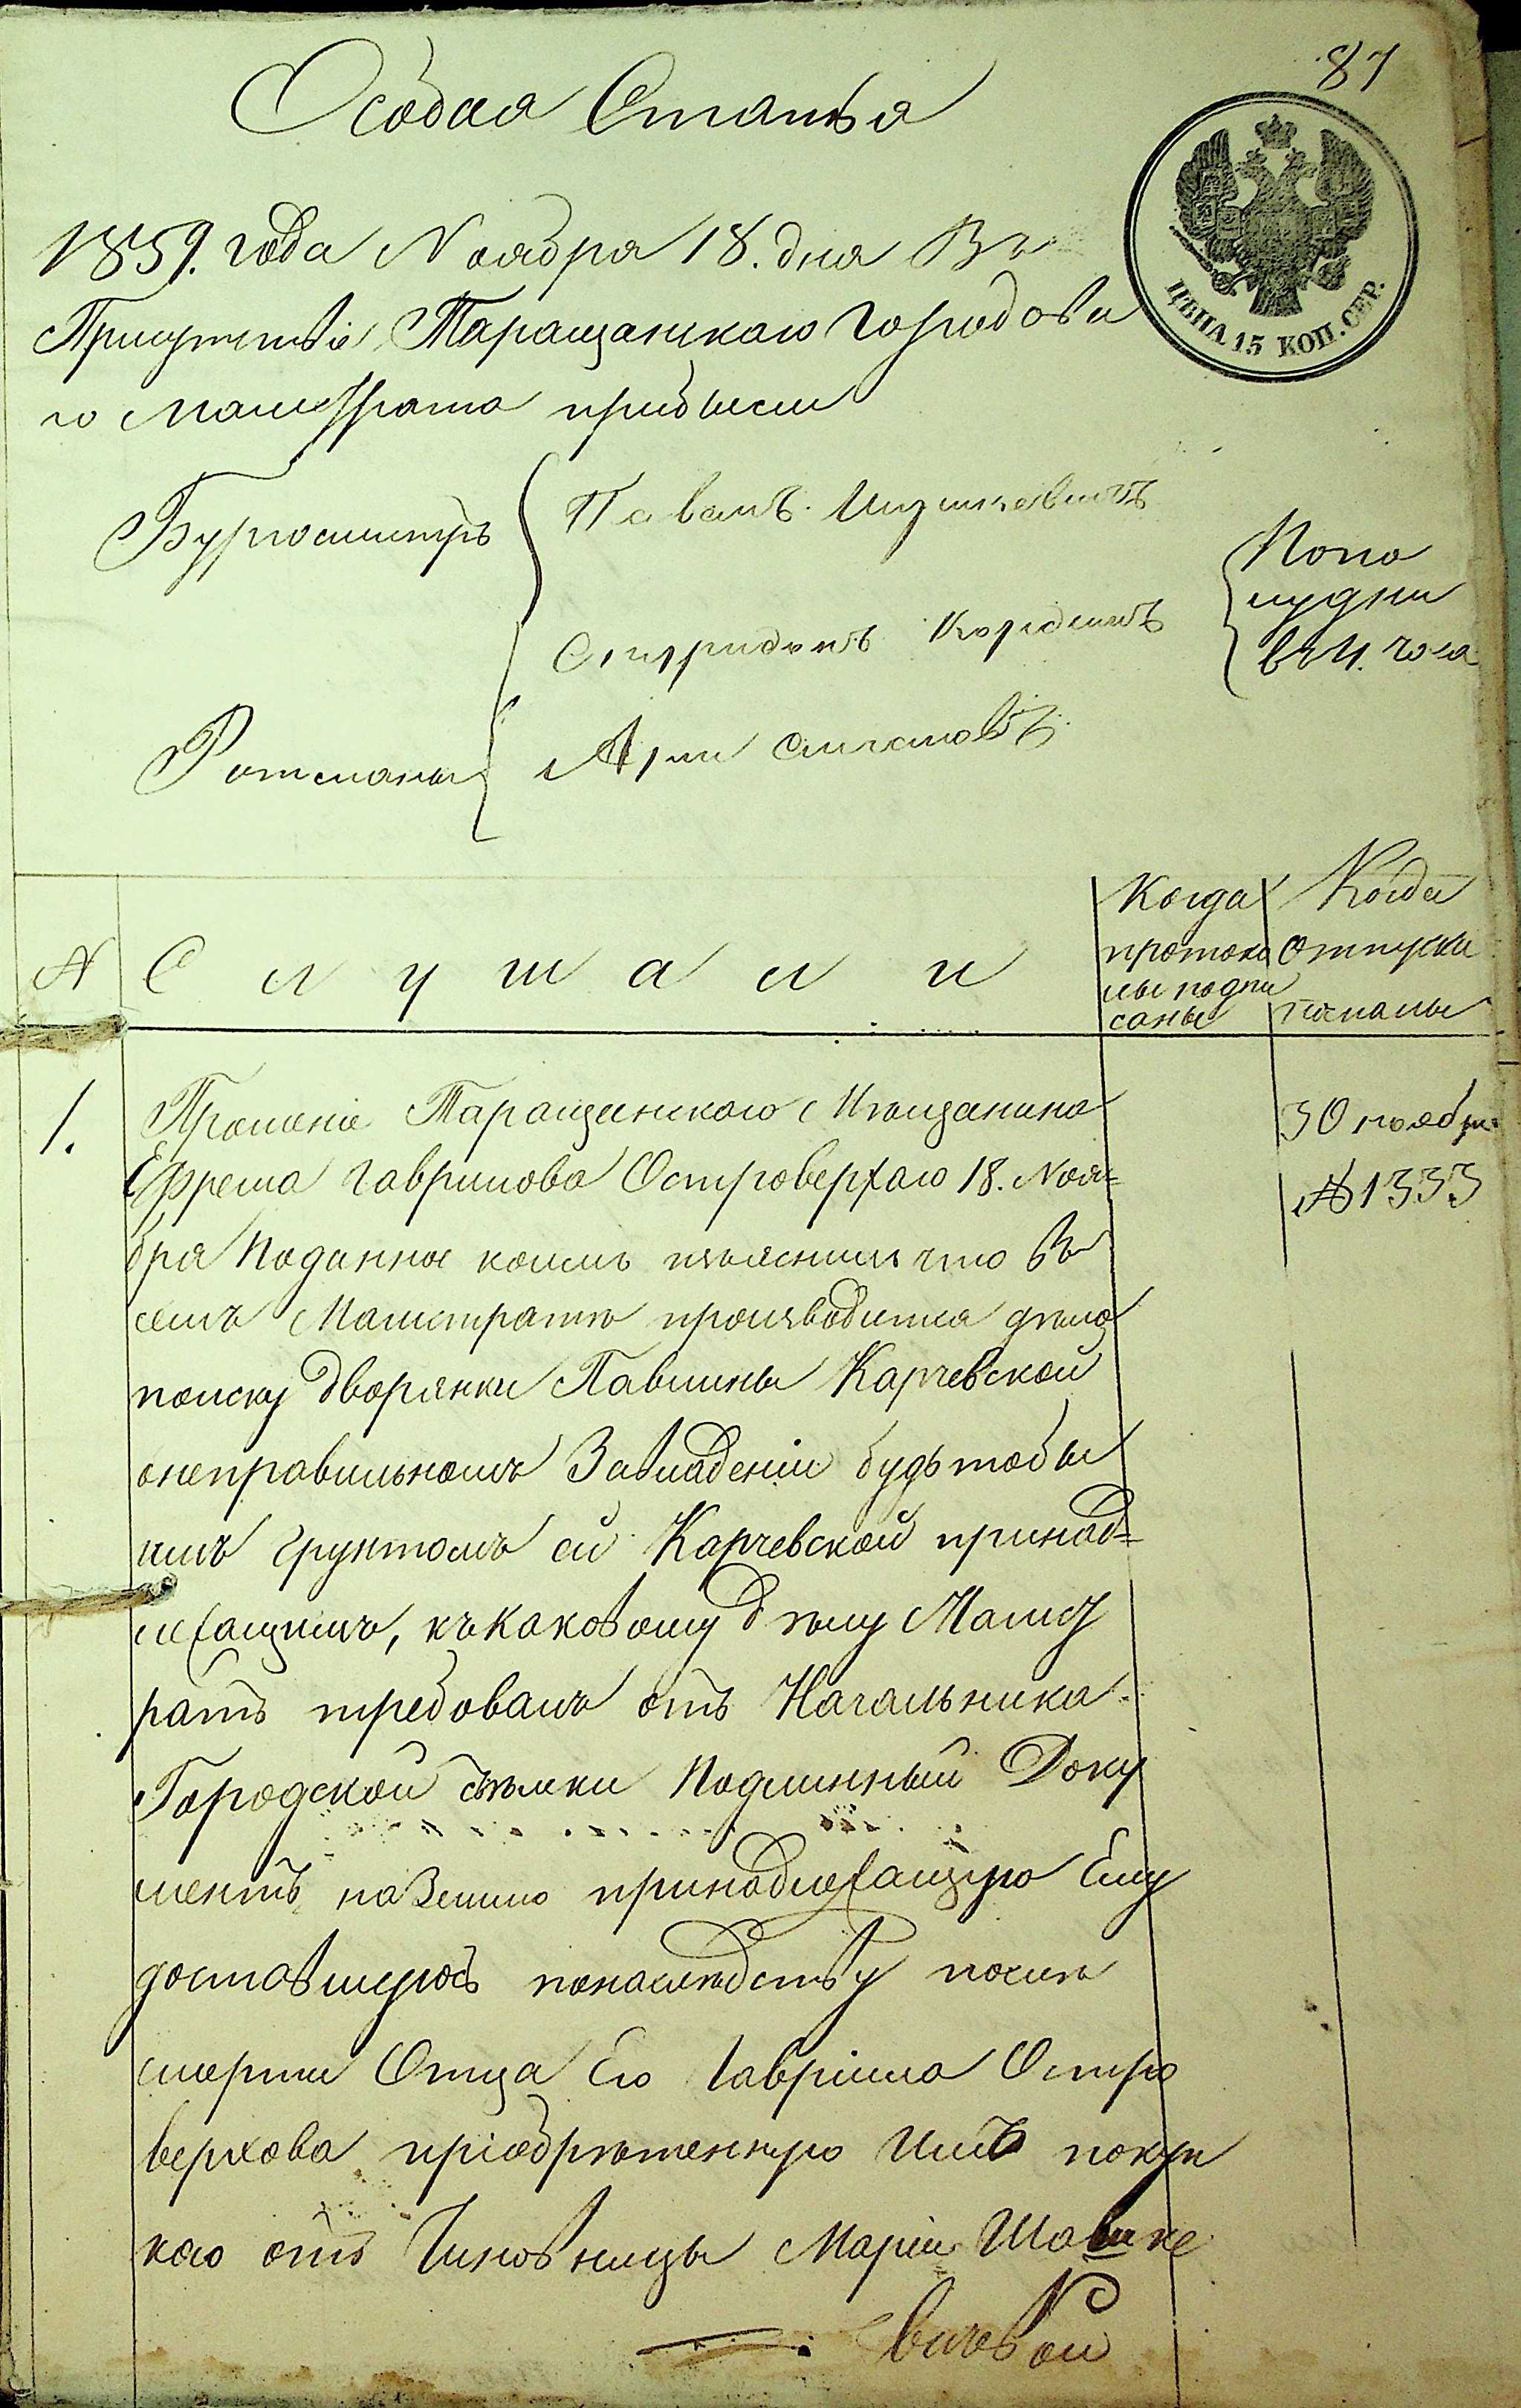 87
Особая Статья
ЦѢНА 15 КОП. СЕР.
1859. года Ноября 18. дня Въ
Присутствіе Таращанскаго Городова
го Магистрата прибыли
Бургомистръ
Павелъ
Спиридонъ
Попо
лудни
въ часа
Ратманы
№
Слушали
Когда
протоко
лы подпи
саны
Когда
Отпуски
писаны
1.
Прошеніе Таращанскаго Мѣщанина
Ефрема Гаврилова Островерхаго 18. Ноя=
бря Поданное коимъ изъяснилъ что Въ
семъ Магистратѣ производится дѣло
поиску дворянки Павлины Карчевской
онеправильномъ Завладеніи будьтобы
имъ грунтомъ ей Карчевской принад=
лежащимъ, къкаковому дѣлу Магист
ратъ требовалъ отъ Начальника
Городской съемки Подлинный Доку
ментъ наЗемлю принадлежащую Ему
доставшуюсь понаслѣдству послѣ
смерти Отца Его Гавріила Остро
верхова пріобрѣтенную Имъ покуп
кою отъ Чиновницы Маріи
вичевой
30 ноября
№ 1333